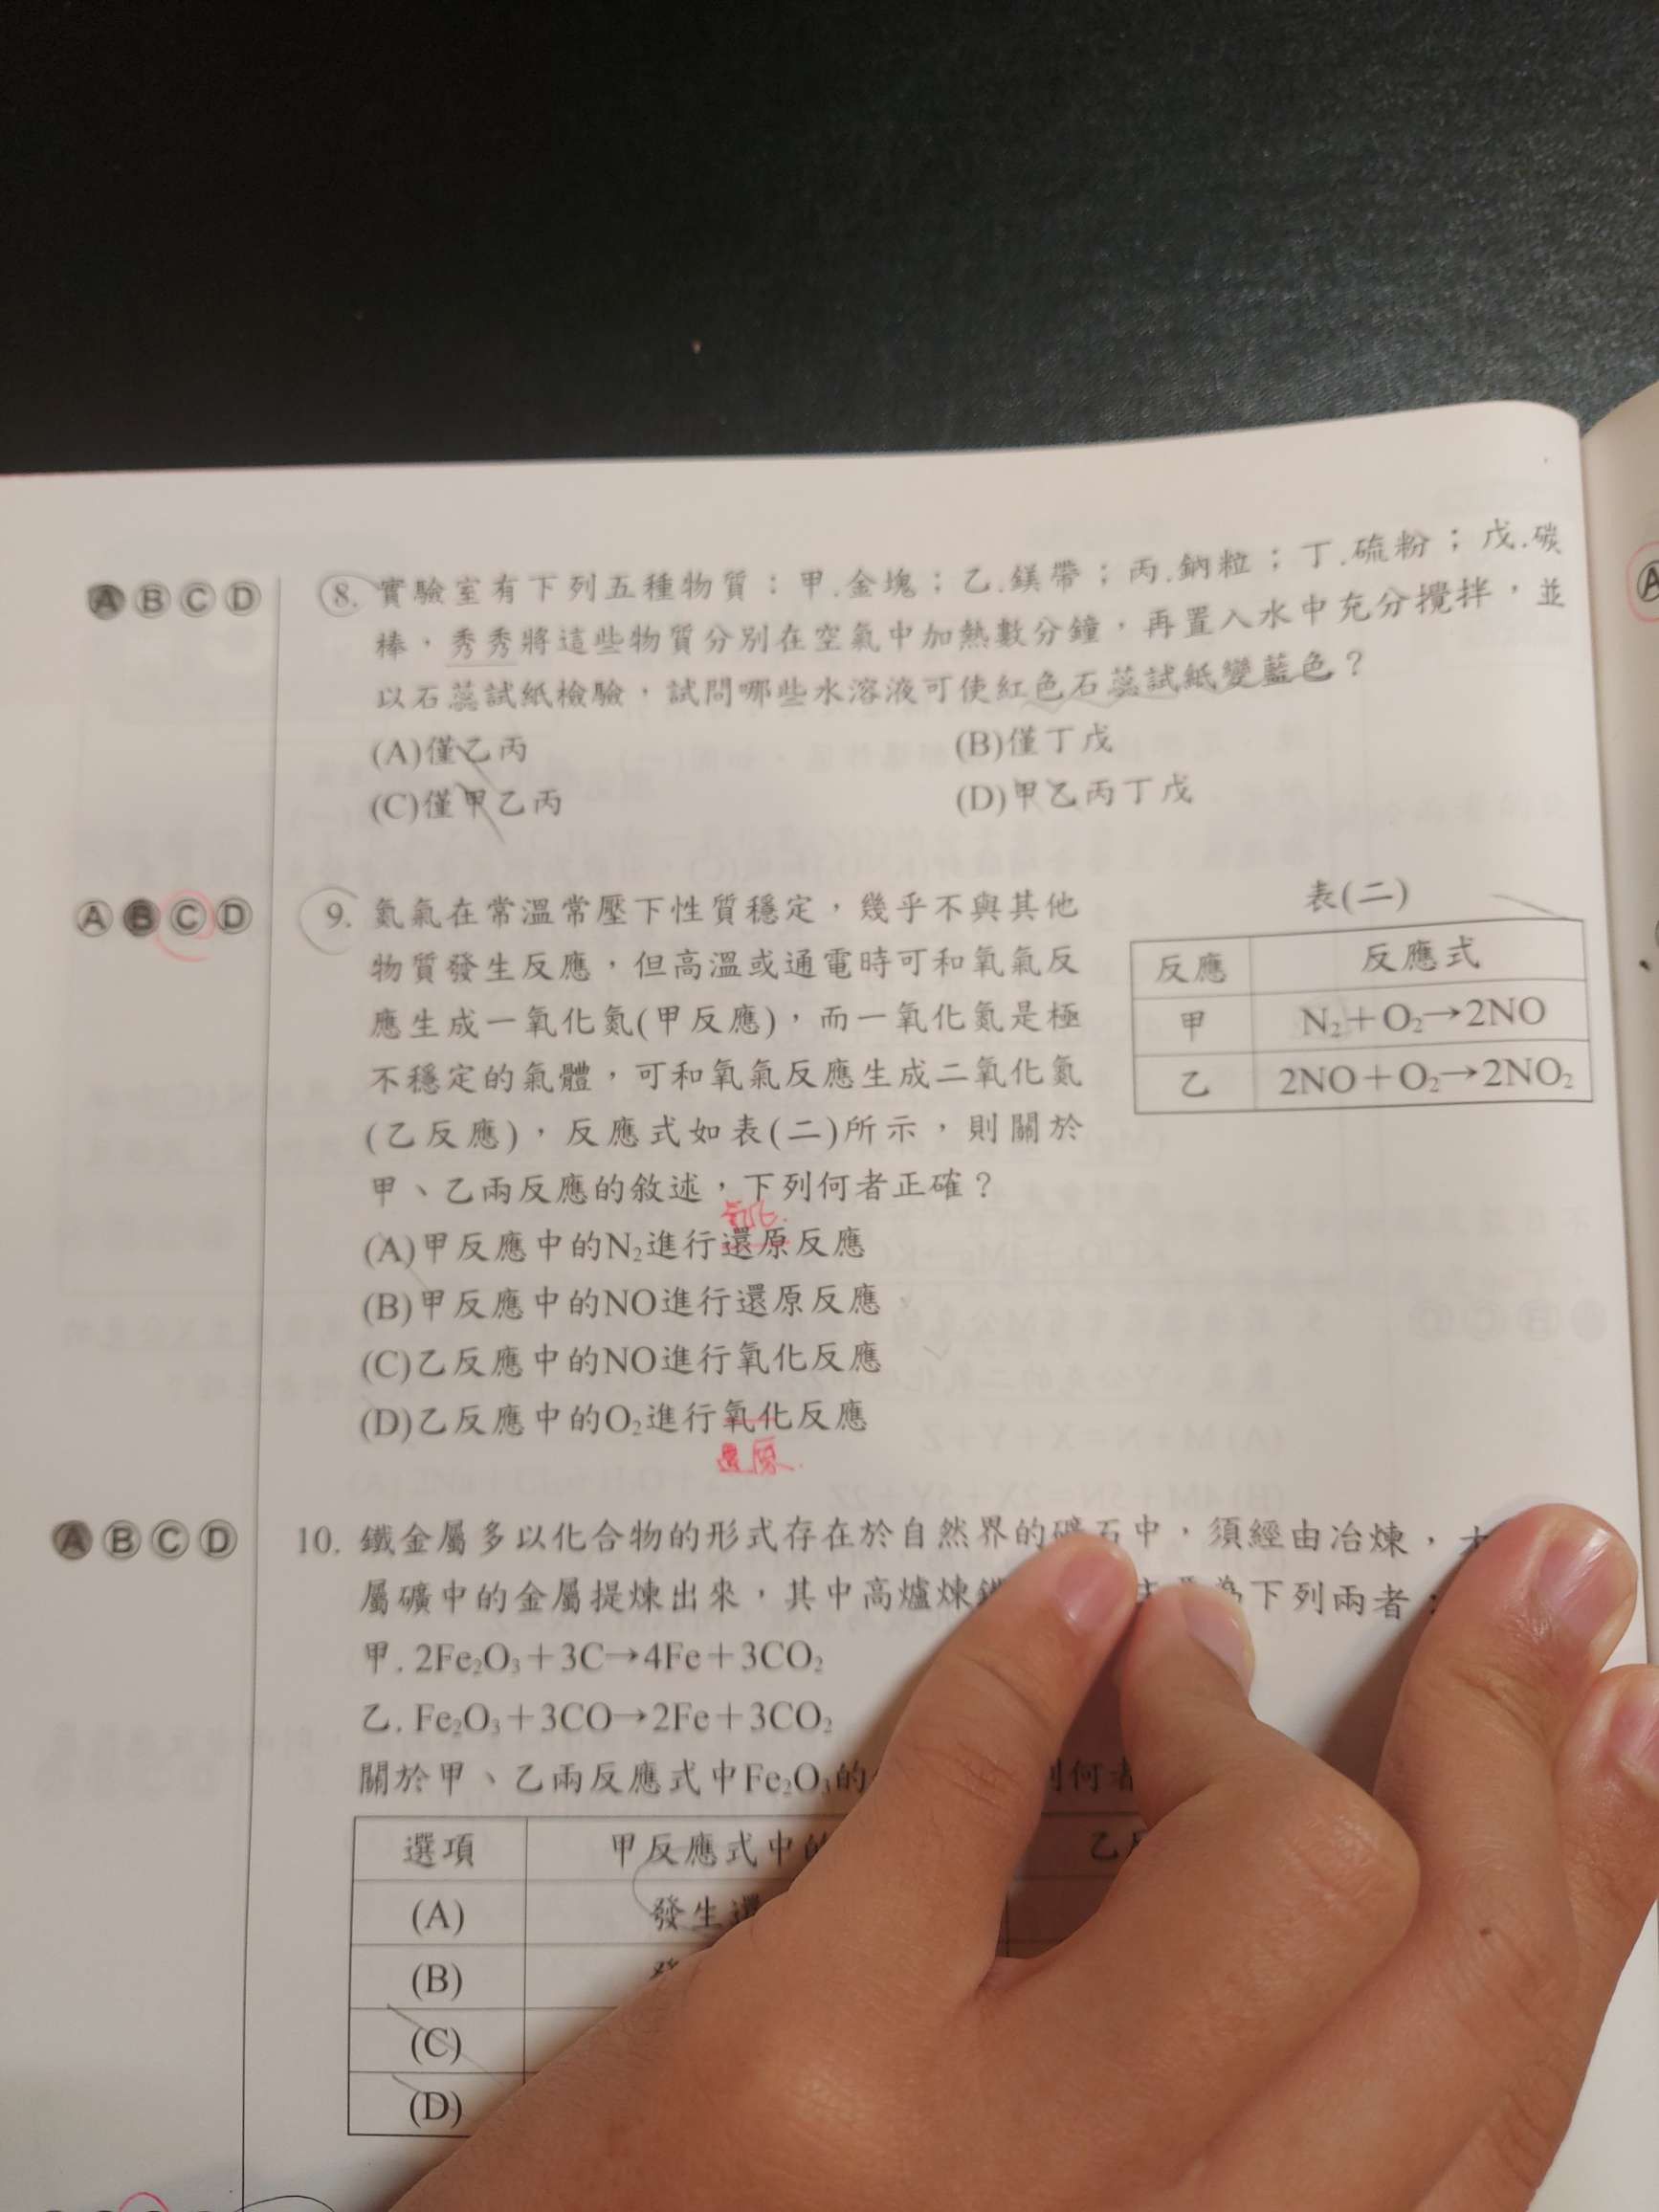 ⒶⒷⒸⒹ
8. 實驗室有下列五種物質：甲.金塊；乙.鎂帶；丙.鈉粒；丁.硫粉；戊.碳
棒，秀秀將這些物質分別在空氣中加熱數分鐘，再置入水中充分攪拌，並
以石蕊試紙檢驗，試問哪些水溶液可使紅色石蕊試紙變藍色？
(A)僅乙丙
(B)僅丁戊
(C)僅甲乙丙
(D)甲乙丙丁戊
ⒶⒷⒸⒹ
9. 氮氣在常溫常壓下性質穩定，幾乎不與其他
物質發生反應，但高溫或通電時可和氧氣反
應生成一氧化氮(甲反應)，而一氧化氮是極
不穩定的氣體，可和氧氣反應生成二氧化氮
(乙反應)，反應式如表(二)所示，則關於
甲、乙兩反應的敘述，下列何者正確？
表(二)
反應 反應式
甲 N₂＋O₂→2NO
乙 2NO＋O₂→2NO₂
氧化.
(A)甲反應中的N₂進行還原反應
(B)甲反應中的NO進行還原反應
(C)乙反應中的NO進行氧化反應
(D)乙反應中的O₂進行氧化反應
還原.
ⒶⒷⒸⒹ
10. 鐵金屬多以化合物的形式存在於自然界的礦石中，須經由冶煉，
屬礦中的金屬提煉出來，其中高爐煉 下列兩者：
甲. 2Fe₂O₃＋3C→4Fe＋3CO₂
乙. Fe₂O₃＋3CO→2Fe＋3CO₂
關於甲、乙兩反應式中Fe₂O₃的 何者
選項 甲反應式中的 乙
(A) 發生還
(B)
(C)
(D)